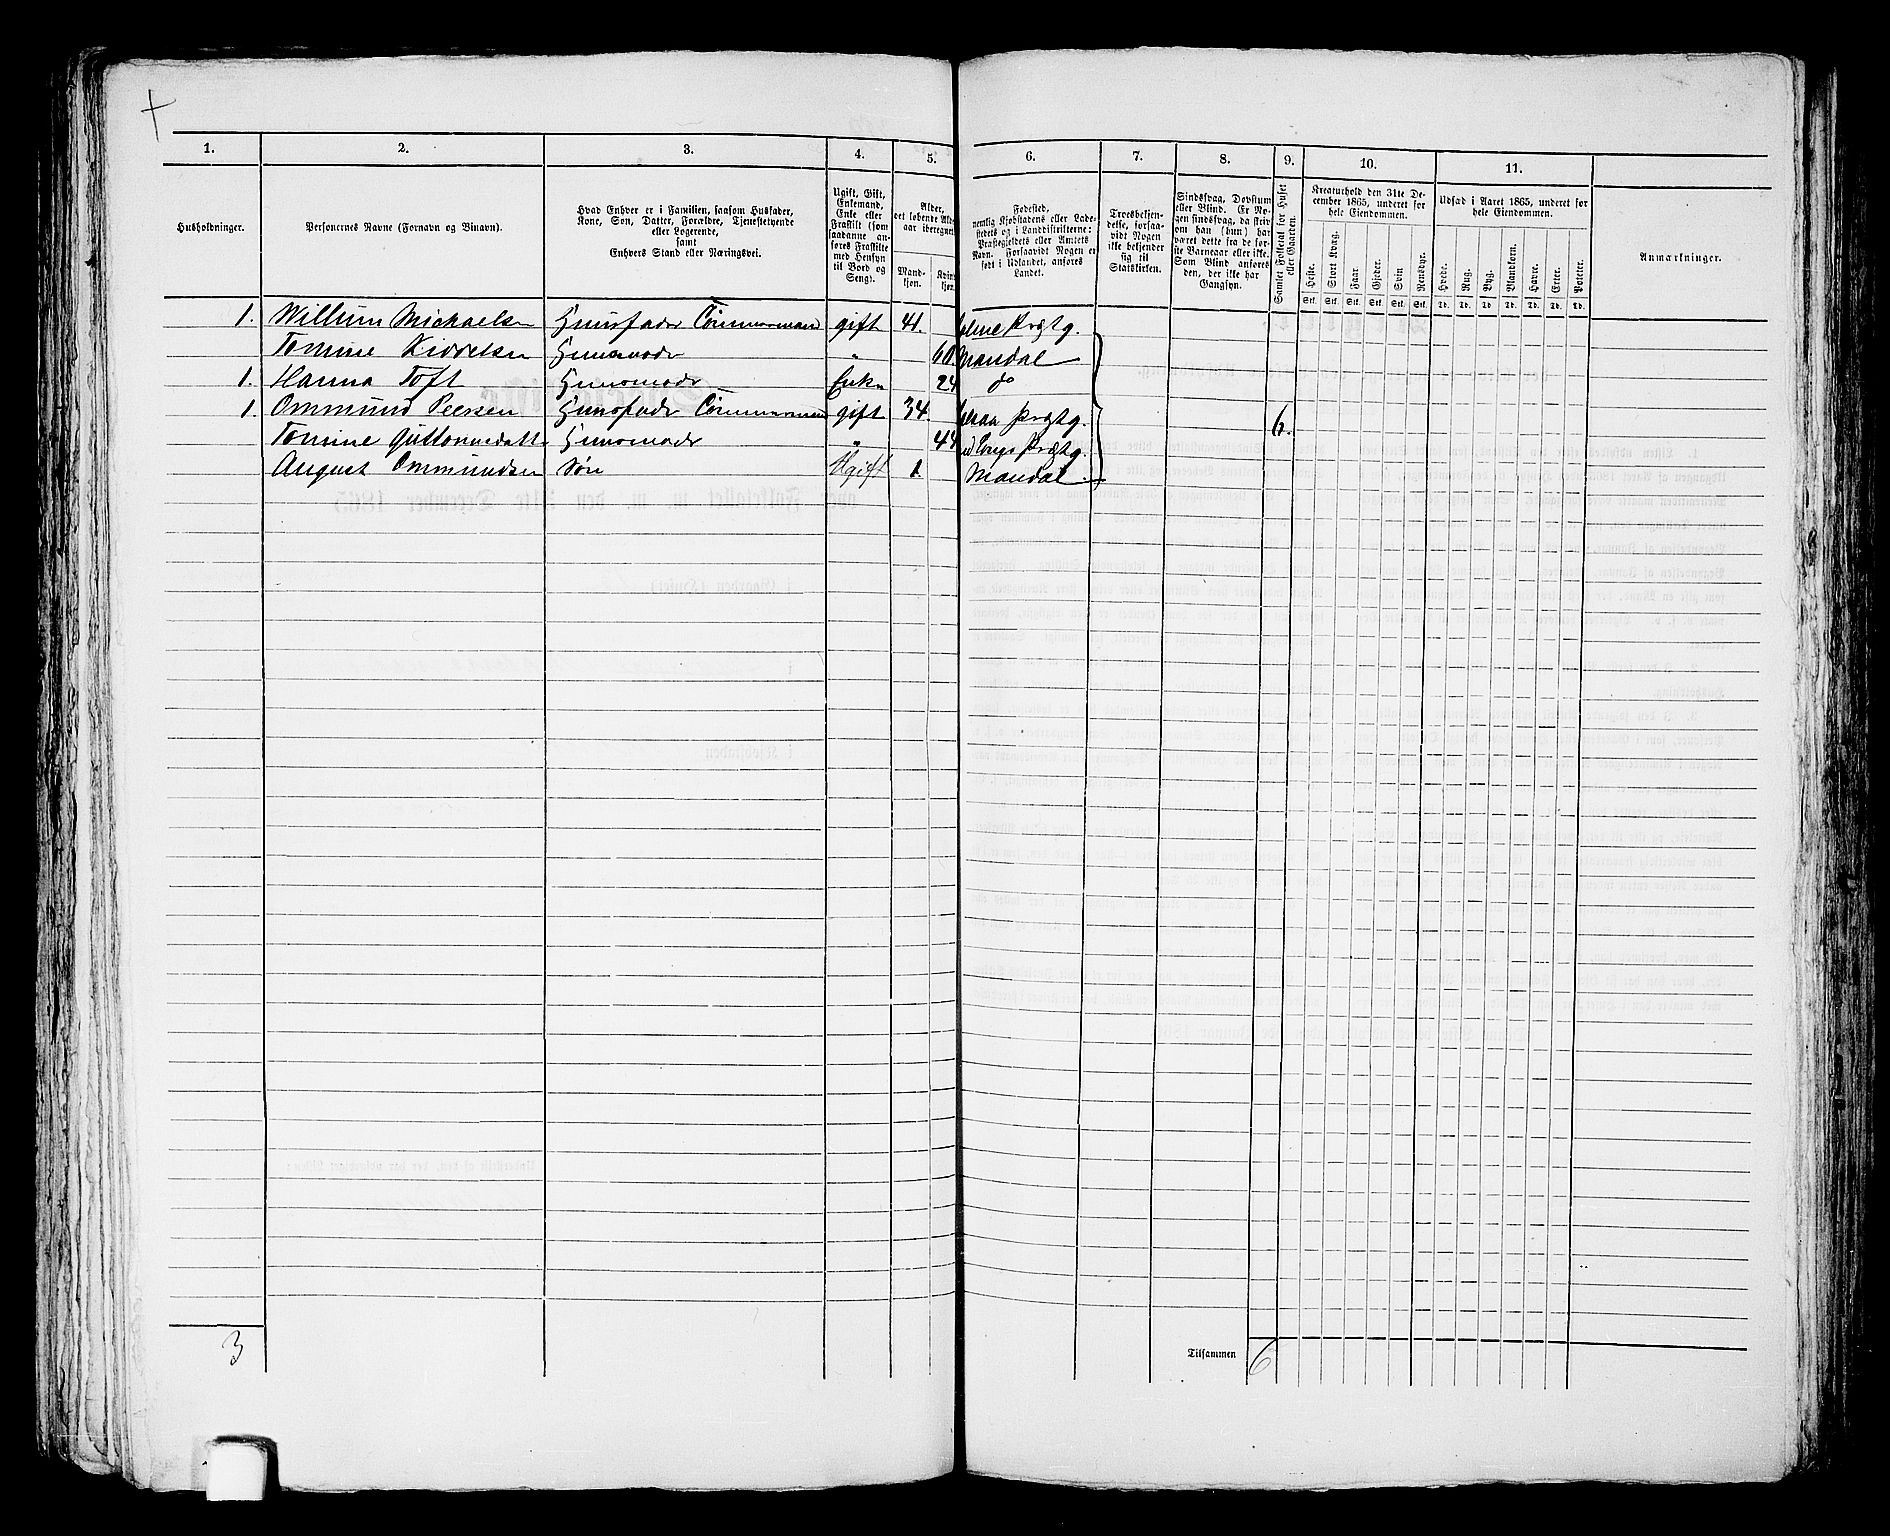 1. 2. 3. 4. 5. 6. 7. 8. 9. 10. 11.
Husholdninger.
Personernes Navne (Fornavn og Binavn).
Hvad Enhver er i Familien, saasom Husfader,
Kone, Søn, Datter, Forældre, Tjenestetyende
eller Logerende,
samt
Enhvers Stand eller Næringsvei.
Ugift, Gift,
Enkemand,
Enke eller
Fraskilt (som
saadanne an-
føres Fraskilte
med Hensyn
til Bord og
Seng).
Alder,
det løbende
aar iberegnet
Mand-
kjøn.
Fødested,
nemlig Kjøbstadens eller Lade-
stedets og i Landdistrikterne:
Præstegjeldets eller Amtets
Navn. Forsaavidt Nogen er
født i Udlandet, anføres
Landet.
Troesbekjen-
delse, forsaa-
vidt Nogen
ikke bekjender
sig til
Statskirken.
Sindssvag, Døvstum
eller Blind. Er No-
gen sindssvag, da skriv
om han (hun) har
været dette fra de før-
ste Barneaar eller ikke.
Som Blind anføres
den, der ikke har
Gangsyn.
Samlet Folketal for Huset
eller Gaarden.
Kreaturhold den 31te De-
cember 1865, underet for
hele Eiendommen.
Heste. Stort Kvæg. Faar. Gjeder. Svin Rensdyr.
Stk. Stk. Stk. Stk. Stk. Stk.
Udsæd i Aaret 1865, underet for
hele Eiendommen.
Hvede. Rug. Byg. Blandkorn. Havre. Erter. Poteter.
Td. Td. Td. Td. Td. Td. Td.
Anmærkninger.
1. Willum Michaelsen Huusfader Tømmermand gift 41. Prægtg.
Tomine Huusmoder " 60. Mandal
1. Hanna Toft Huusmoder Enke 24 do
1 Ommund Peersen Huusfader Tømmermand gift 34. Prægtg. 6.
Tomine Huusmoder " 44 Prægtg.
August Ommundsen Søn Ugift 1. Mandal.
3 Tilsammen 6